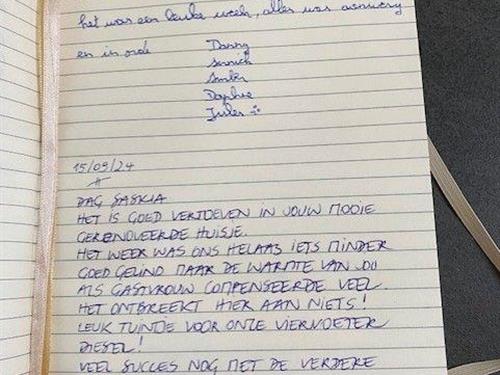 het was een leuke week, alles was aanwezig
en in orde
Danny
Daphne
Jules
15/09/24
DAG SASKIA
HET IS GOED VERTOEVEN IN JOUW MOOIE
GERENOVEERDE HUISJE.
HET WEER WAS ONS HELAAS IETS MINDER
GOED GEZIND MAAR DE WARMTE VAN JOU
ALS GASTVROUW COMPENSEERDE VEEL.
HET ONTBREEKT HIER AAN NIETS!
LEUK TUINTJE VOOR ONZE VIERVOETER
DIESEL!
VEEL SUCCES NOG MET DE VERDERE